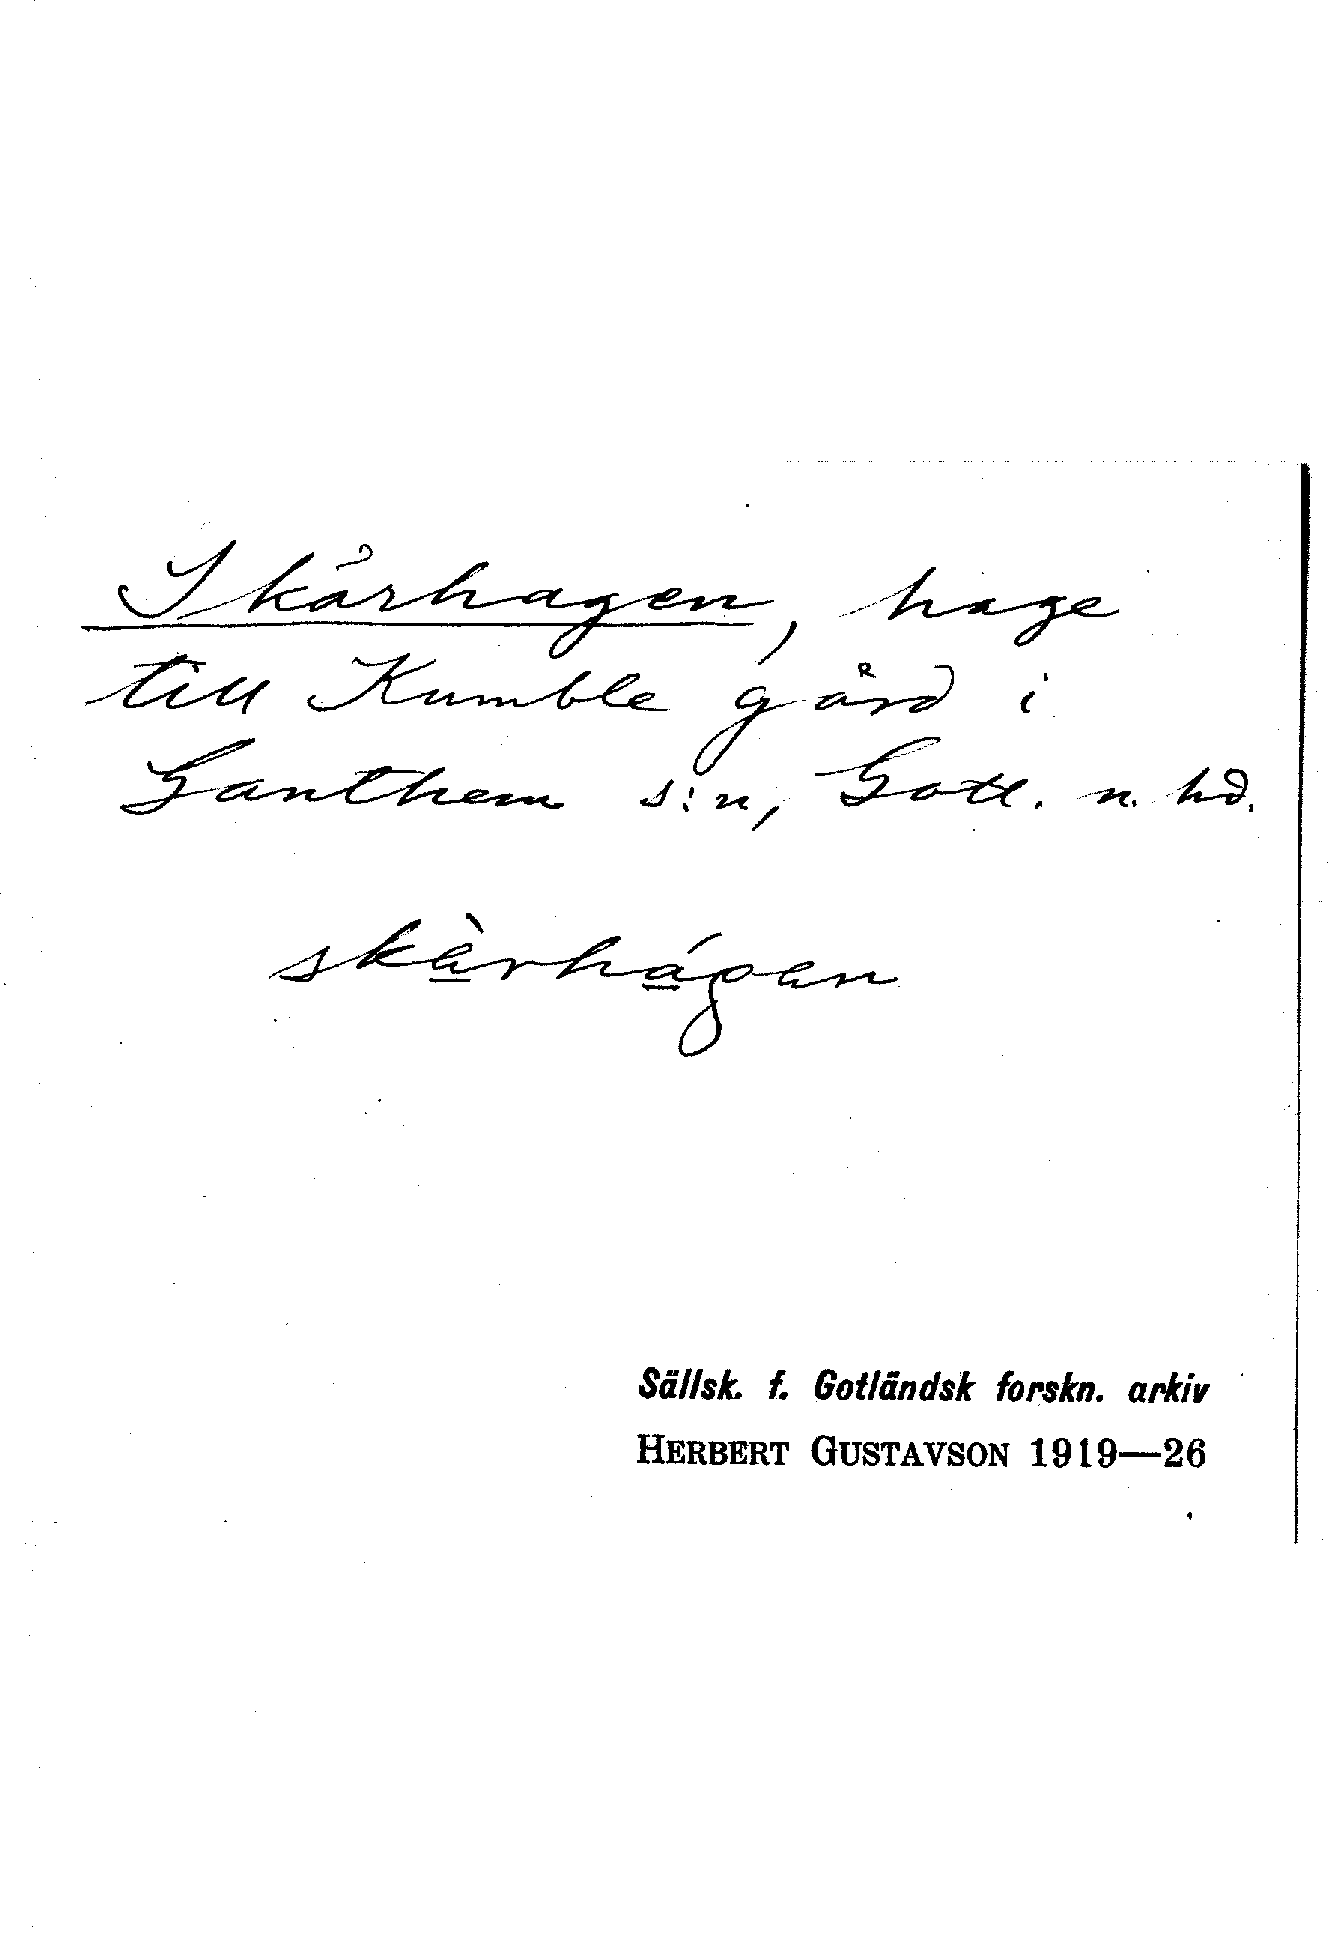 Skårhagen, hage
till Kumble gård i
Ganthem s:n, Gotl. n. hd.
skàrhágen
Sällsk. f. Gotländsk forskn. arkiv
HERBERT GUSTAVSON 1919—26